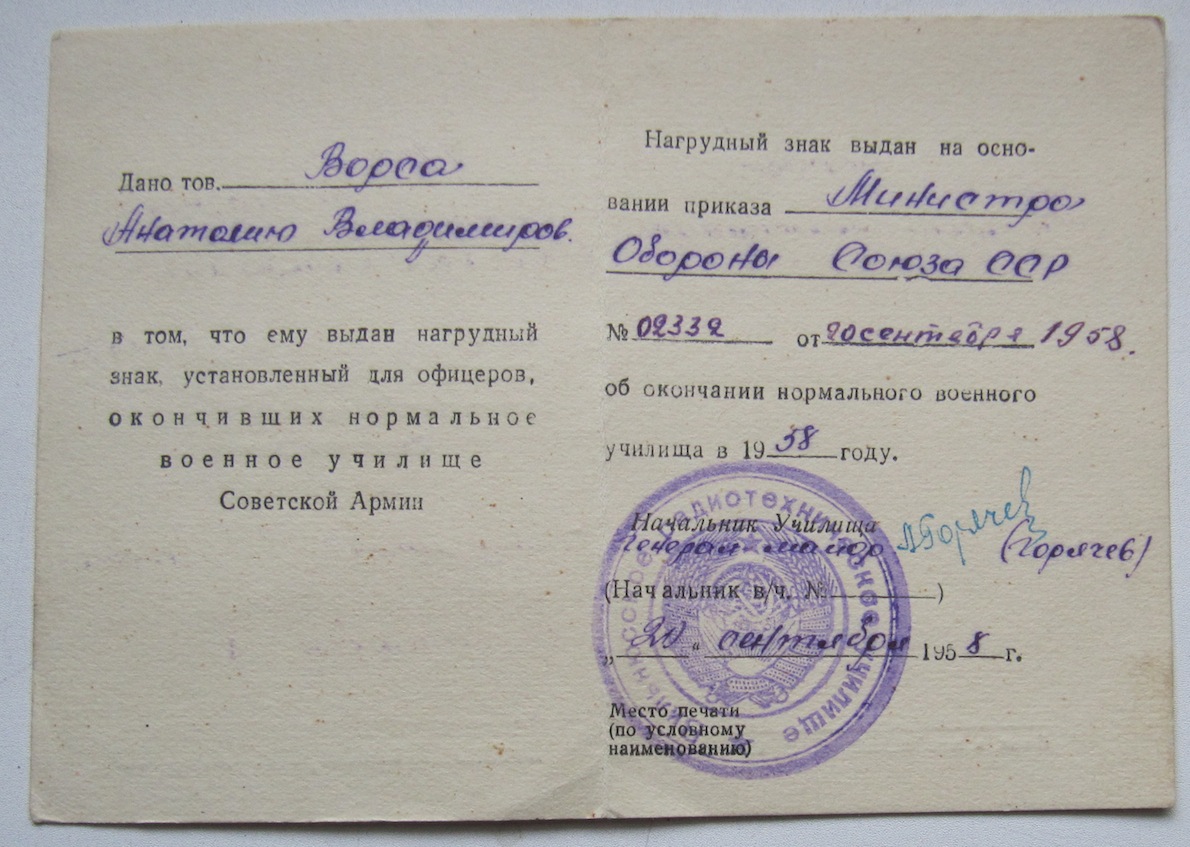 Дано тов. Ворса
Анатолию Владимиров.
в том, что ему выдан нагрудный
знак, установленный для офицеров,
окончивших нормальное
военное училище
Советской Армии
Нагрудный знак выдан на осно-
вании приказа Министра
Обороны Союза ССР
№ 02332 от 20 сентября 1958.
об окончании нормального военного
училища в 1958 году.
Начальник Училища
Генерал-майор АГорячев (Горячев)
(Начальник в/ч. № )
„ 20 “ сентября 1958 г.
Место печати
(по условному
наименованию)
радиотехническое училище